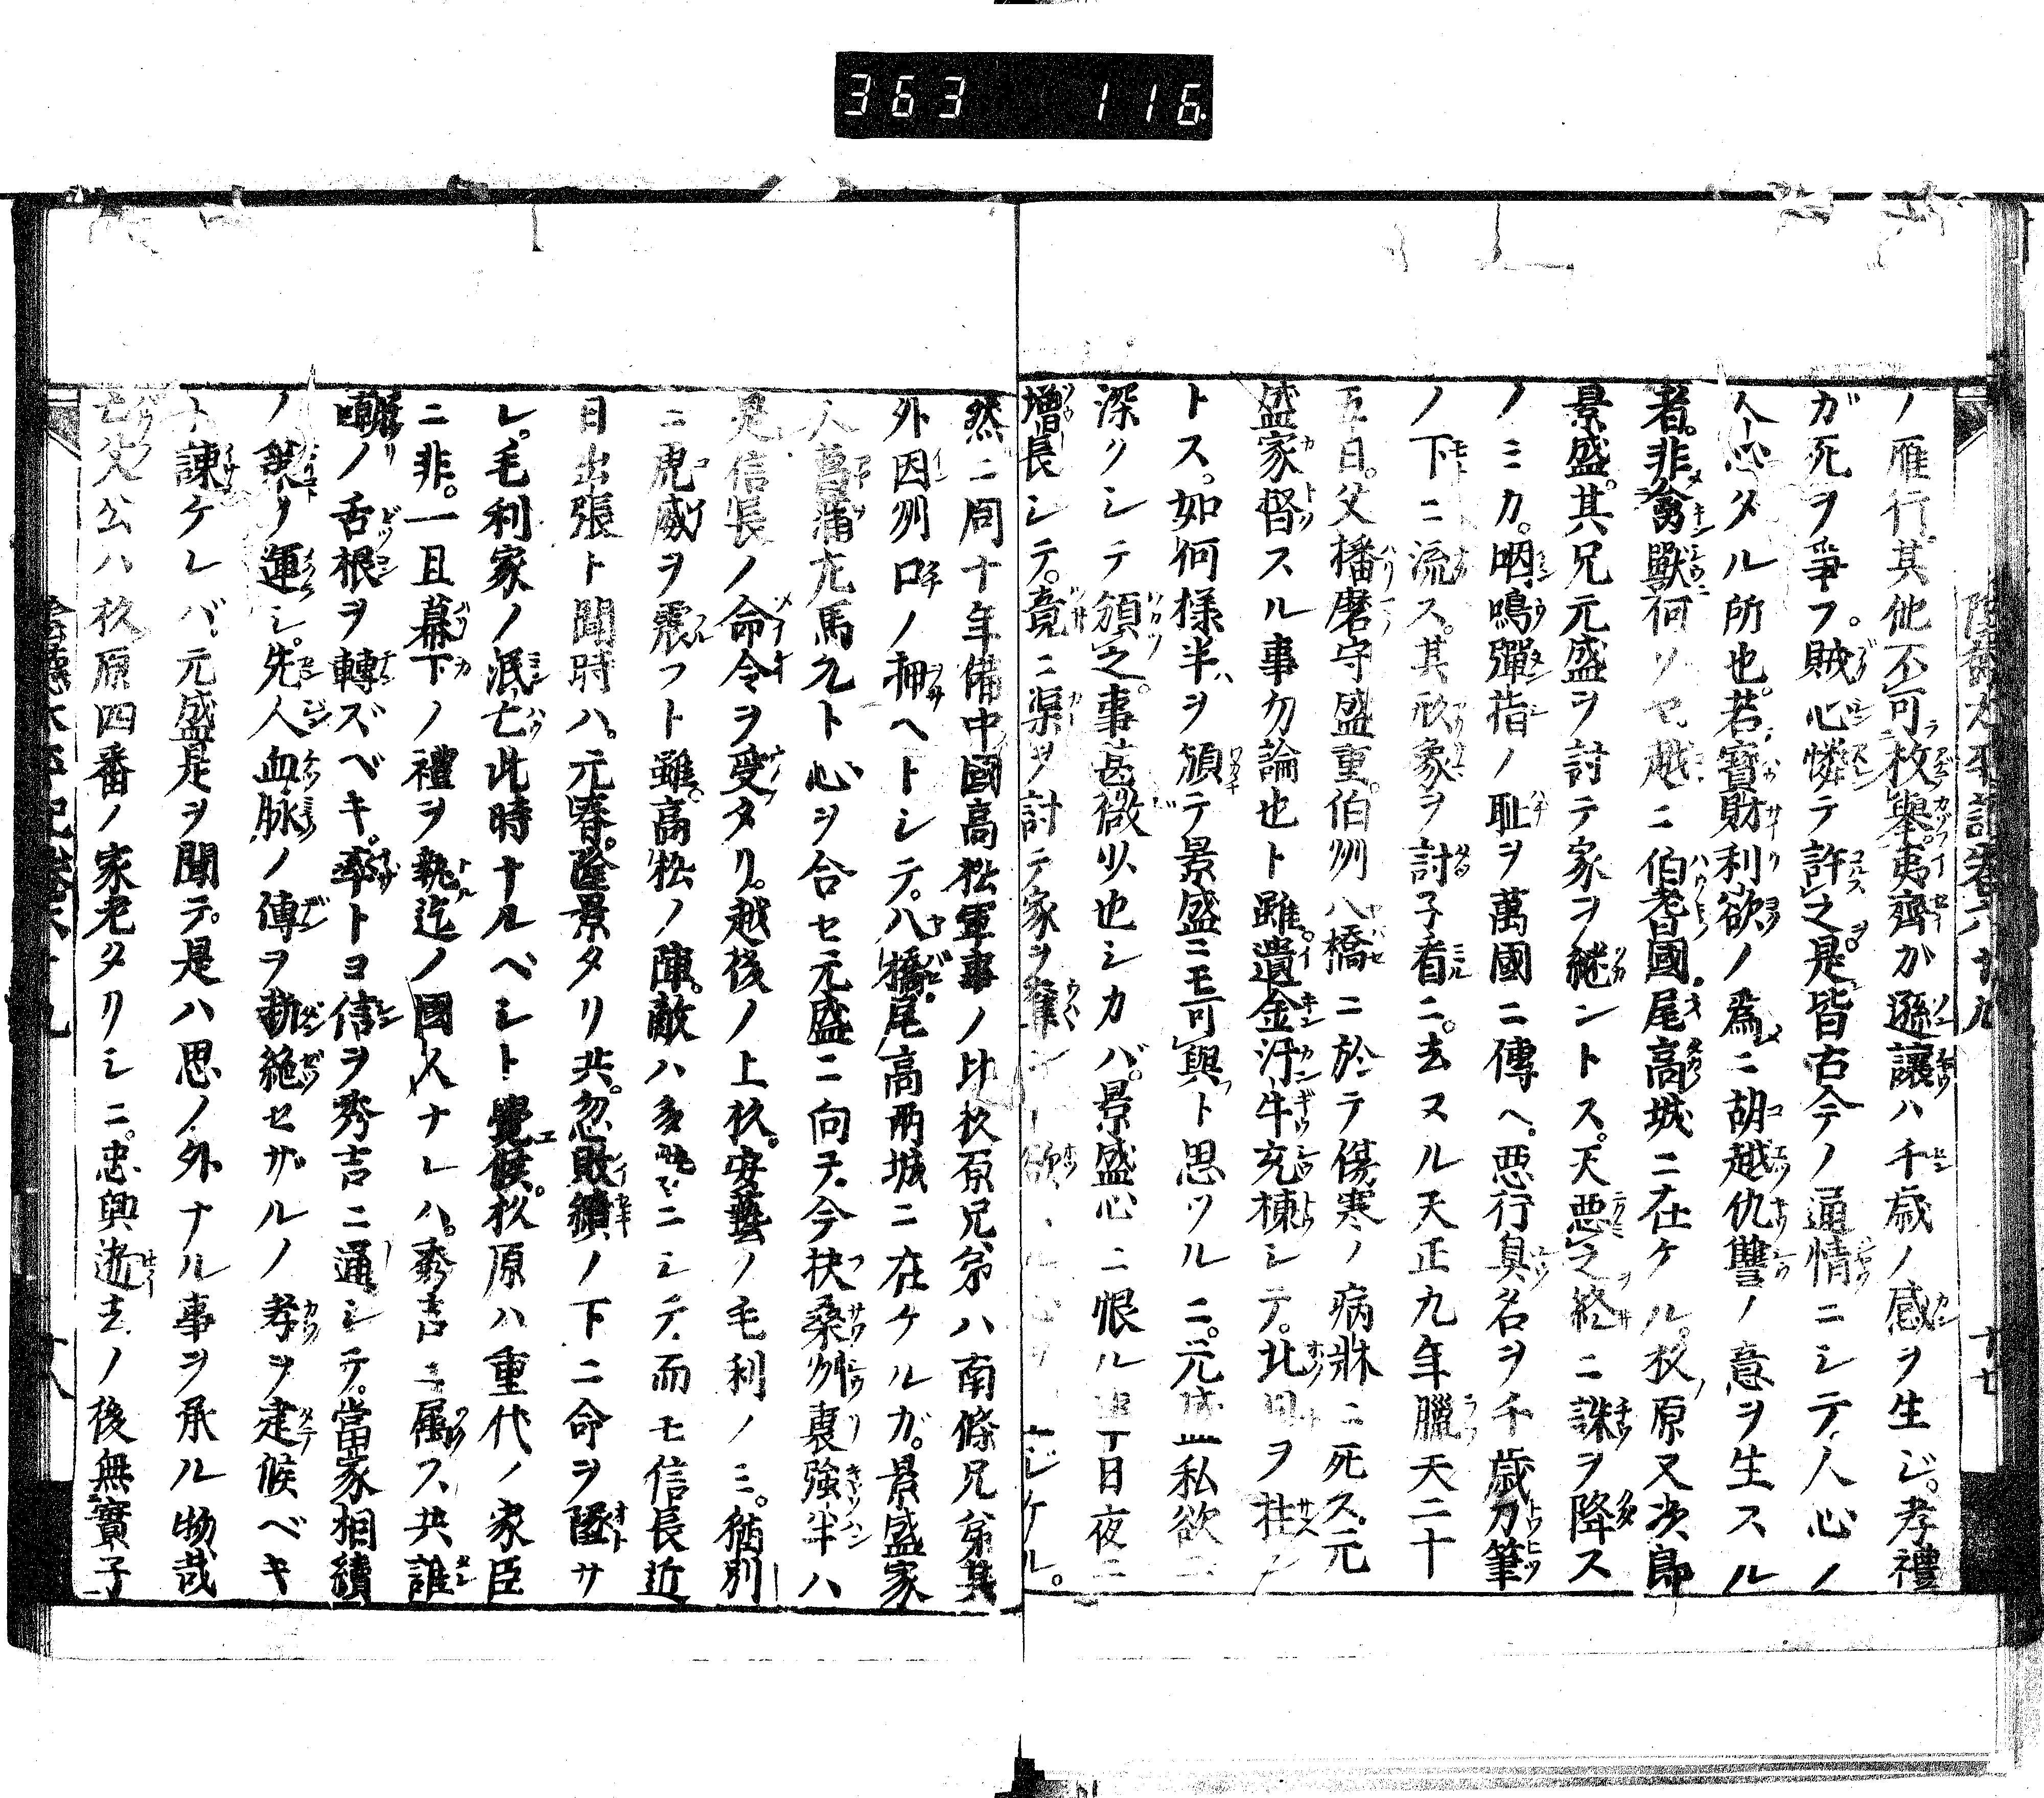 363 116
ノ雁行其他不可枚舉夷齊カ遜讓ハ千歳ノ感ヲ生ジ。孝禮
ガ死ヲ爭フ。賊心憐テ許之是皆古今ノ通情ニシテ人心ノ
タル所也。若寶財利欲ノ爲ニ胡越仇讐ノ意ヲ生スル
者。非禽獸何ソヤ越ニ伯耆國尾高城ニ在ケル。杉原又次郎
景盛。其兄元盛ヲ討テ家ヲ継ントス。天悪之終ニ誅ヲ降ス
ノミカ。鳴彈指ノ耻ヲ萬國ニ傳ヘ。悪行臭名ヲ千歳刀筆
ノ下ニ流ス。其家ヲ討子看ニ。去ヌル天正九年臘天二十
五日。父播磨守盛重。伯州八橋ニ於テ傷寒ノ病牀ニ死ス。元
盛家督スル事勿論也ト雖。遺金汗牛充棟シテ。北ヲ拄
トス。如何様半ヲ頒テ景盛ニモ可與ト思ツルニ。元盛私欲ニ
深クシテ頒之。事甚微少也シカバ。景盛心ニ恨ル事日夜ニ
増長シテ。竟ニ渠ヲ討テ家ヲ奪 欲 ケル。
然ニ同十年備中國高松軍事ノ比杉原兄弟ハ南條兄弟其
外因州口ノ押ヘトシテ。八橋。尾高兩城ニ在ケルガ。景盛家
人菖蒲左馬允ト心ヲ合セ元盛ニ向テ。今扶桑州裏強半ハ
是信長ノ命令ヲ受タリ。越後ノ上杉。安藝ノ毛利ノミ。猶別
ニ虎威ヲ震フト雖。高松ノ陣。敵ハ多勢ニシテ。而モ信長近
日出張ト聞時ハ。元春。隆景タリ共。忽敗績ノ下ニ命ヲ隕サ
レ。毛利家ノ泯亡此時ナルベシト覺候。杉原ハ重代ノ家臣
ニ非。一旦幕下ノ禮ヲ執迄ノ國人ナレハ。秀吉ニ属ス共誰
カ嘲ノ舌根ヲ轉ズベキ。率トヨ信ヲ秀吉ニ通シテ。當家相續
ノ謀ヲ運シ。先人血脉ノ傳ヲ斷絶セザルノ孝ヲ建候ベキ
ト諫ケレバ。元盛是ヲ聞テ。是ハ思ノ外ナル事ヲ承ル物哉
亡父公ハ杉原四番ノ家老タリシニ。忠興逝去ノ後無實子